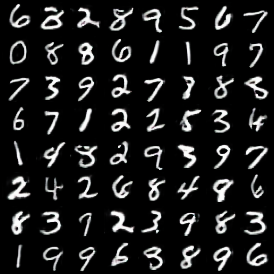 6 8 2 8 9 5 6 7
0 8 8 6 1 1 9 7
7 3 9 2 7 3 8 8
6 7 1 2 2 5 3 4
1 4 8 2 9 3 9 7
2 4 2 6 8 4 9 6
8 3 7 2 3 9 8 3
1 9 9 6 3 8 9 6